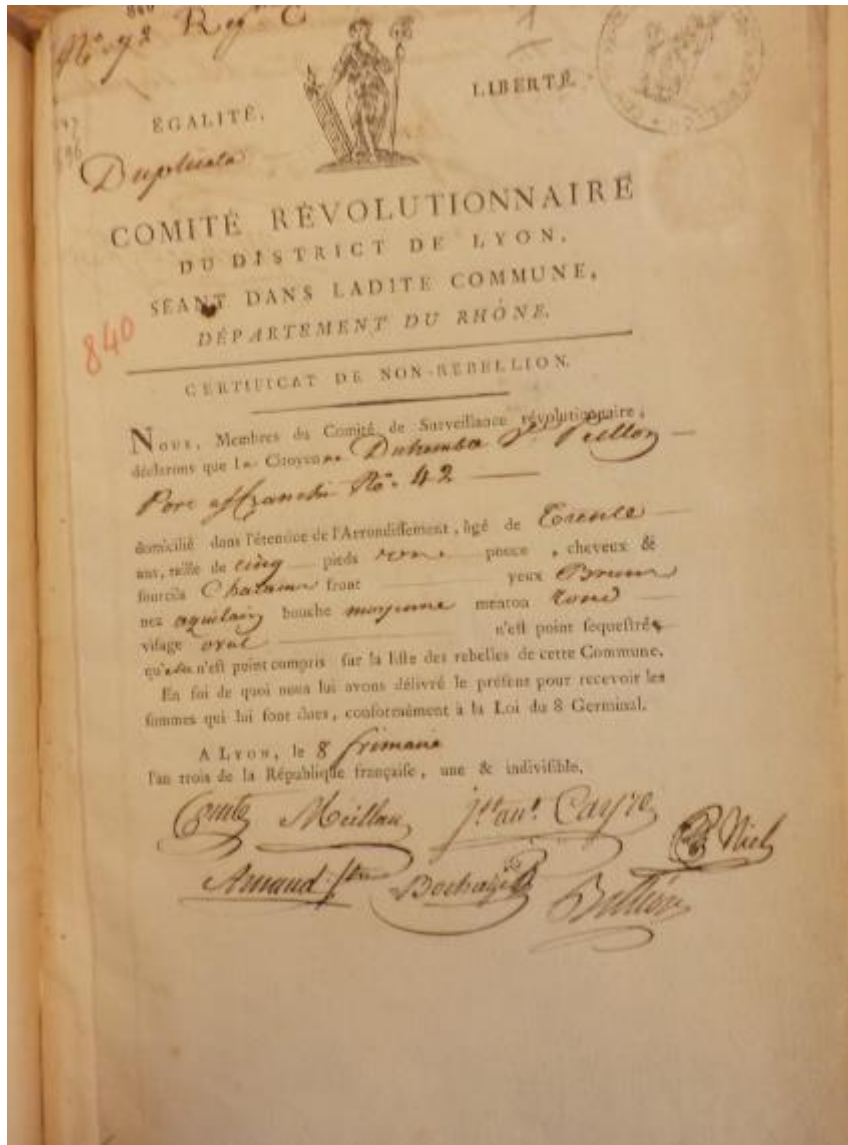 840
N.° 92 Reg.
ÉGALITÉ,
LIBERTÉ.
Duplicata
COMITÉ RÉVOLUTIONNAIRE
DU DISTRICT DE LYON,
SÉANT DANS LADITE COMMUNE,
DÉPARTEMENT DU RHÔNE.
840
CERTIFICAT DE NON-REBELLION.
Nous, Membres du Comité de Surveillance révolutionnaire,
déclarons que la Citoyenne
Port affranchi No. 42
domicilié dans l'étendue de l'Arrondiſſement, âgé de Trente
ans, taille de cinq pieds pouce, cheveux &
ſourcils front yeux Bruns
nez aquilain bouche moyenne menton rond
viſage oval n'eſt point ſequeſtré
qu'elle n'eſt point compris ſur la liſte des rebelles de cette Commune.
En foi de quoi nous lui avons délivré le préſent pour recevoir les
ſommes qui lui ſont dues, conformément à la Loi du 8 Germinal.
A LYON, le 8 frimaire
l'an trois de la République françaiſe, une & indiviſible.
Meillan Cayre Niel
Arnaud